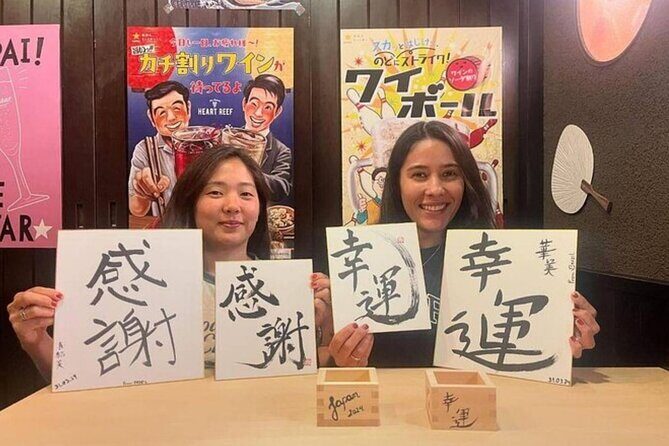 PAI!
STAR
今日も一杯、お疲れ様〜!
カチ割りワインが
待ってるよ
HEART REEF
スカッとはじけ、
のどにストライク!
ワイボール
ワインの
ソーダ割り
感謝
31.03.24
感謝
幸運
幸運
華美
31.03.24
Japan
2024
幸運